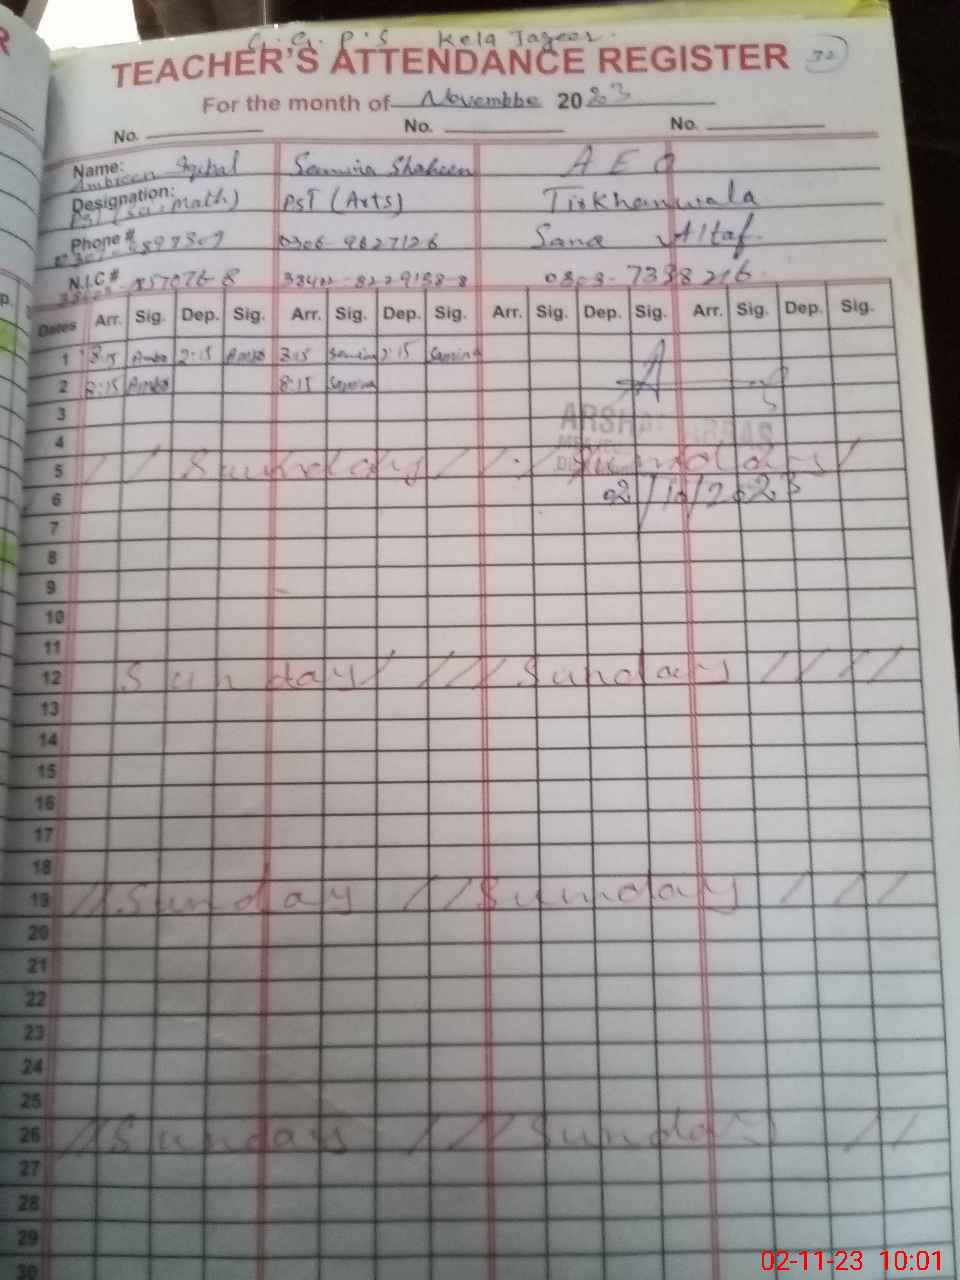 G. G. P.S Kela Jageer.
TEACHER'S ATTENDANCE REGISTER 32
For the month of Novembbe 2023
No. No. No.
Name: Ambreen Iqbal Samina Shaheen A E O
Designation: PST (Sci-Math) PST (Arts) Tirkhanwala
Phone # 0306-9627126 Sana Altaf
N.I.C # 0303-7338216
Dates Arr. Sig. Dep. Sig. Arr. Sig. Dep. Sig. Arr. Sig. Dep. Sig. Arr. Sig. Dep. Sig.
1 8:15 Amb 2:15 Amb 8:15 Samina 2:15 Samina
2 8:15 Amb 8:15 Samina
3
4
5 Sunday Sunday
6 02/11/2023
7
8
9
10
11
12 Sunday Sunday
13
14
15
16
17
18
19 Sunday Sunday
20
21
22
23
24
25
26 Sunday Sunday
27
28
29
30
02-11-23 10:01